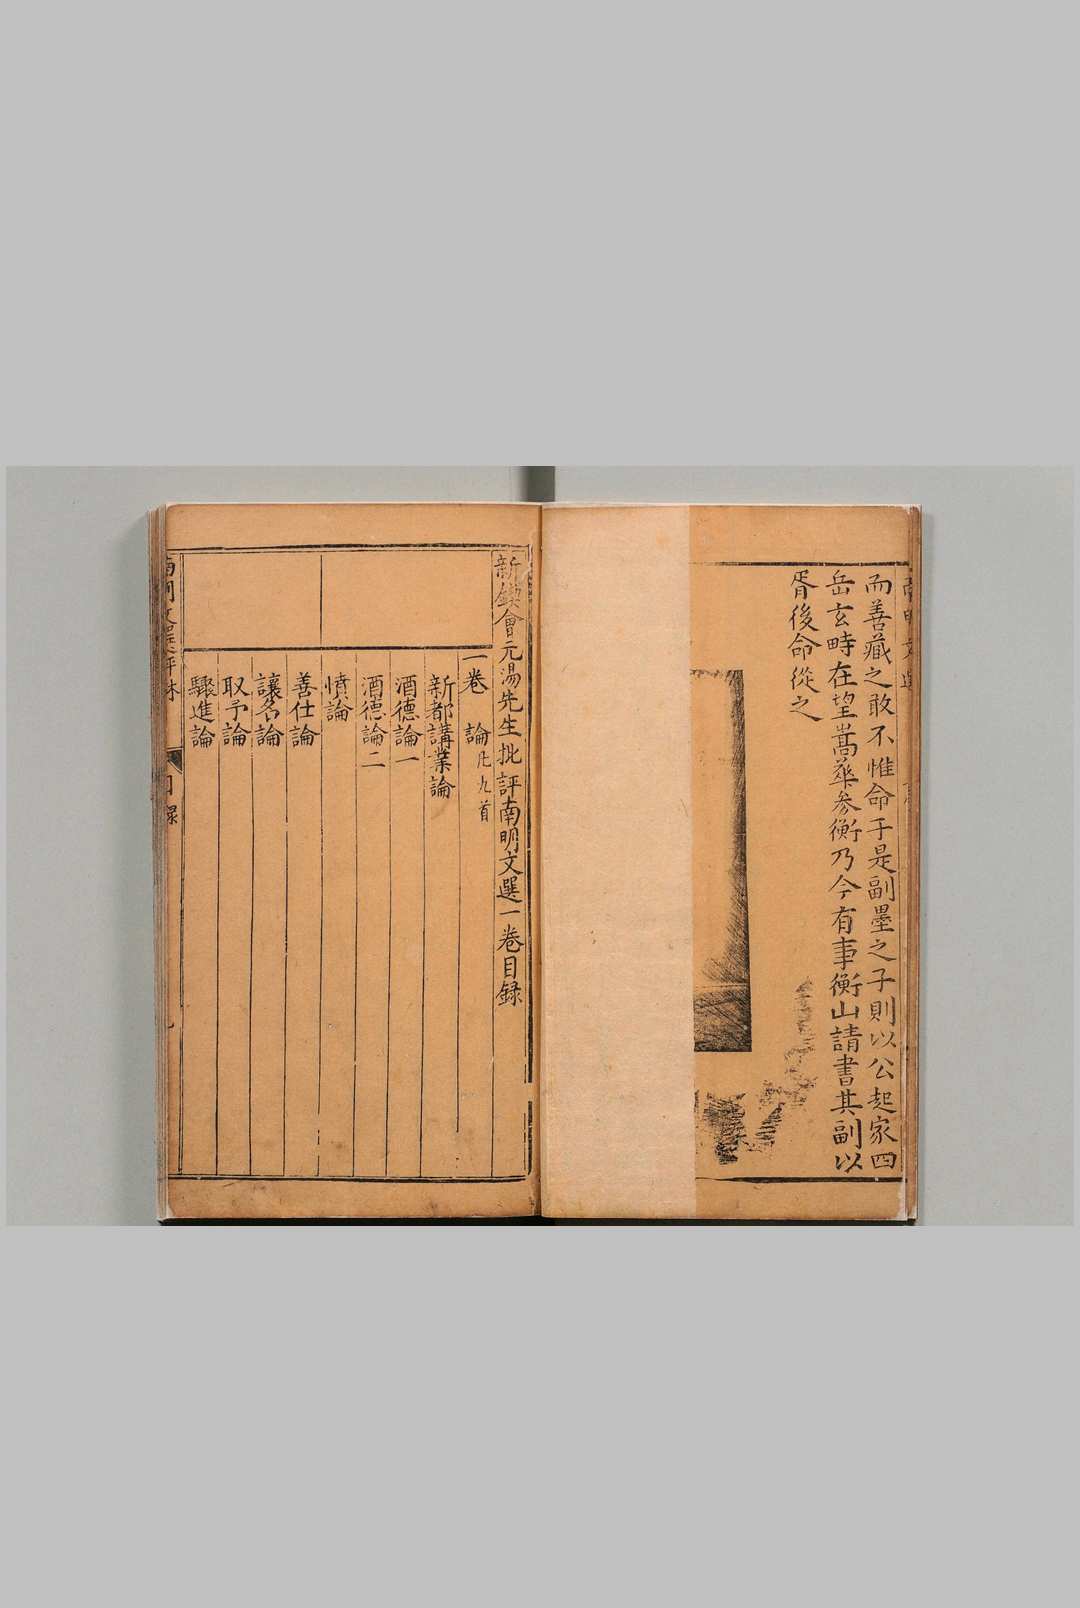 而善藏之敢不惟命于是副墨之子則以公起家四
岳玄畤在望嵩華參衡乃今有事衡山請書其副以
胥後命從之
新鍥會元湯先生批評南明文選一卷目錄
一卷 論凡九首
新都講業論
酒德論一
酒德論二
憤論
善仕論
讓名論
取予論
驟進論
南明文選評林 目錄